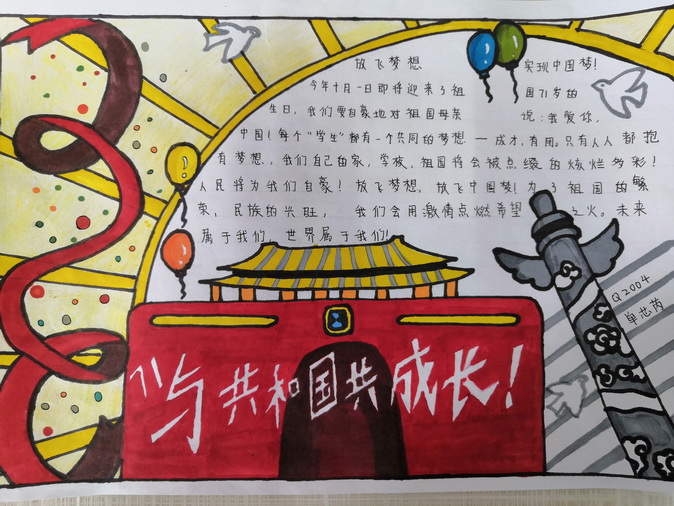 放飞梦想 实现中国梦!
今年十月一日即将迎来了祖国71岁的
生日,我们要自豪地对祖国母亲说:我爱你,
中国!每个“学生”都有一个共同的梦想—成才,有用。只有人人都抱
有梦想,我们自己自家,学校,祖国将会被点缀的炫烂多彩!
人民将为我们自豪!放飞梦想,放飞中国梦!为了祖国的繁
荣,民族的兴旺,我们会用激情点燃希望之火。未来
属于我们,世界属于我们!
Q2004
单芯芮
与共和国共成长!